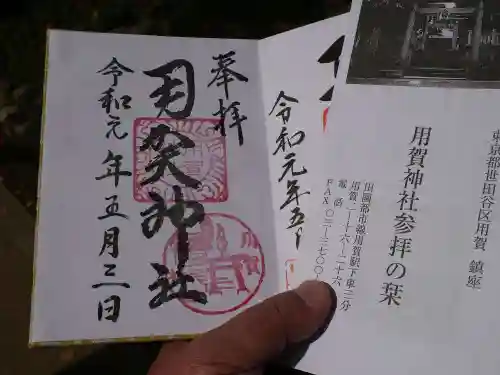 奉拝
用賀神社
令和元年五月三日
令和元年五
東京都世田谷区用賀 鎮座
用賀神社参拝の栞
田園都市線用賀駅下車三分
用賀二―十六―二十六
電話
FAX〇三―三七〇〇